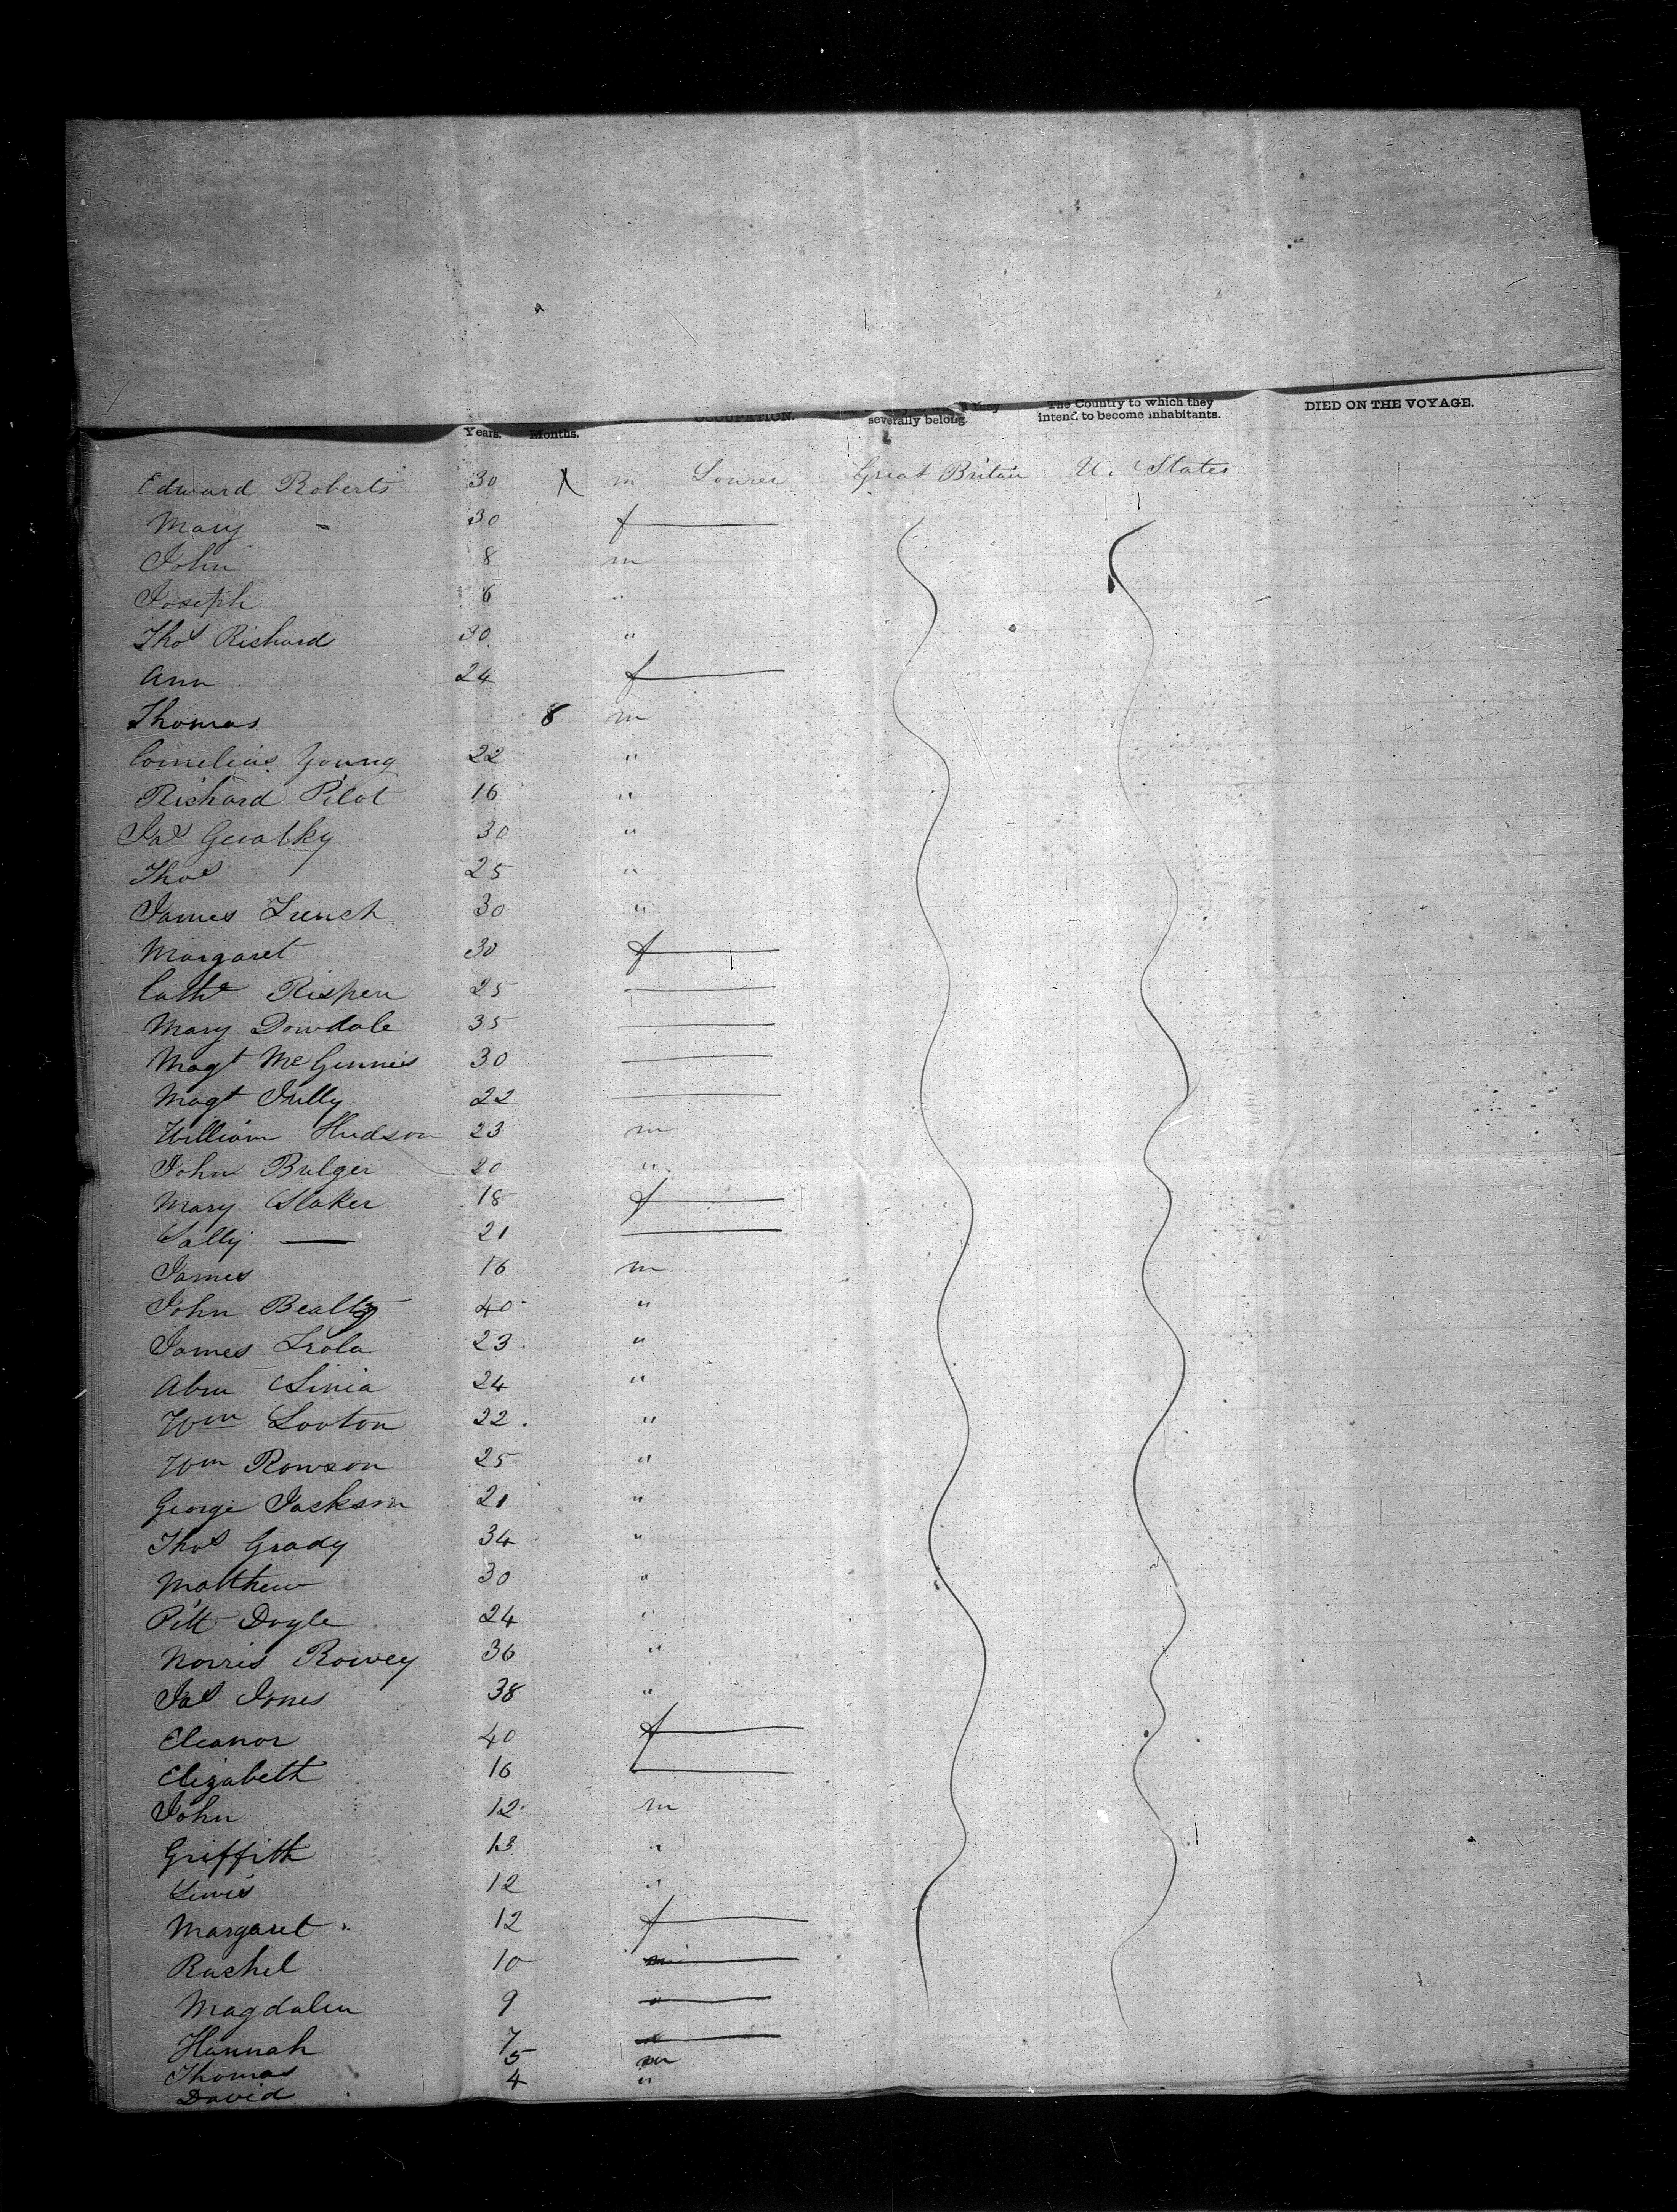 OCCUPATION. they severally belong. The Country to which they intend to become inhabitants. DIED ON THE VOYAGE.
Years. Months.
Edward Roberts 30 m Great Britain U. States
Mary - 30 f
John 8 m
Joseph 6 "
Thos Richard 30 "
Ann 24 f
Thomas 8 m
Cornelius Young 22 "
Richard Pilot 16 "
Jas 30 "
Thos 25 "
James Lunch 30 "
Margaret 30 f
Cathe Rispen 25
Mary Dowdale 35
Magt McGinnis 30
Magt 22
William Hudson 23 m
John Bulger 20 "
Mary Slaker 18 f
Sally — 21
James 16 m
John 40 "
James 23 "
Abm Sinia 24 "
Wm Looton 22. "
Wm Rowson 25 "
George Jackson 21 "
Thos Grady 34 "
Matthew 30 "
Patt Doyle 24 "
Norris 36 "
Jas Jones 38 "
Eleanor 40 f
Elizabeth 16
John 12 m
Griffith 13 "
Lewis 12 "
Margaret 12 f
Rachel 10
Magdalen 9
Hannah 7
Thomas 5 m
David 4 "